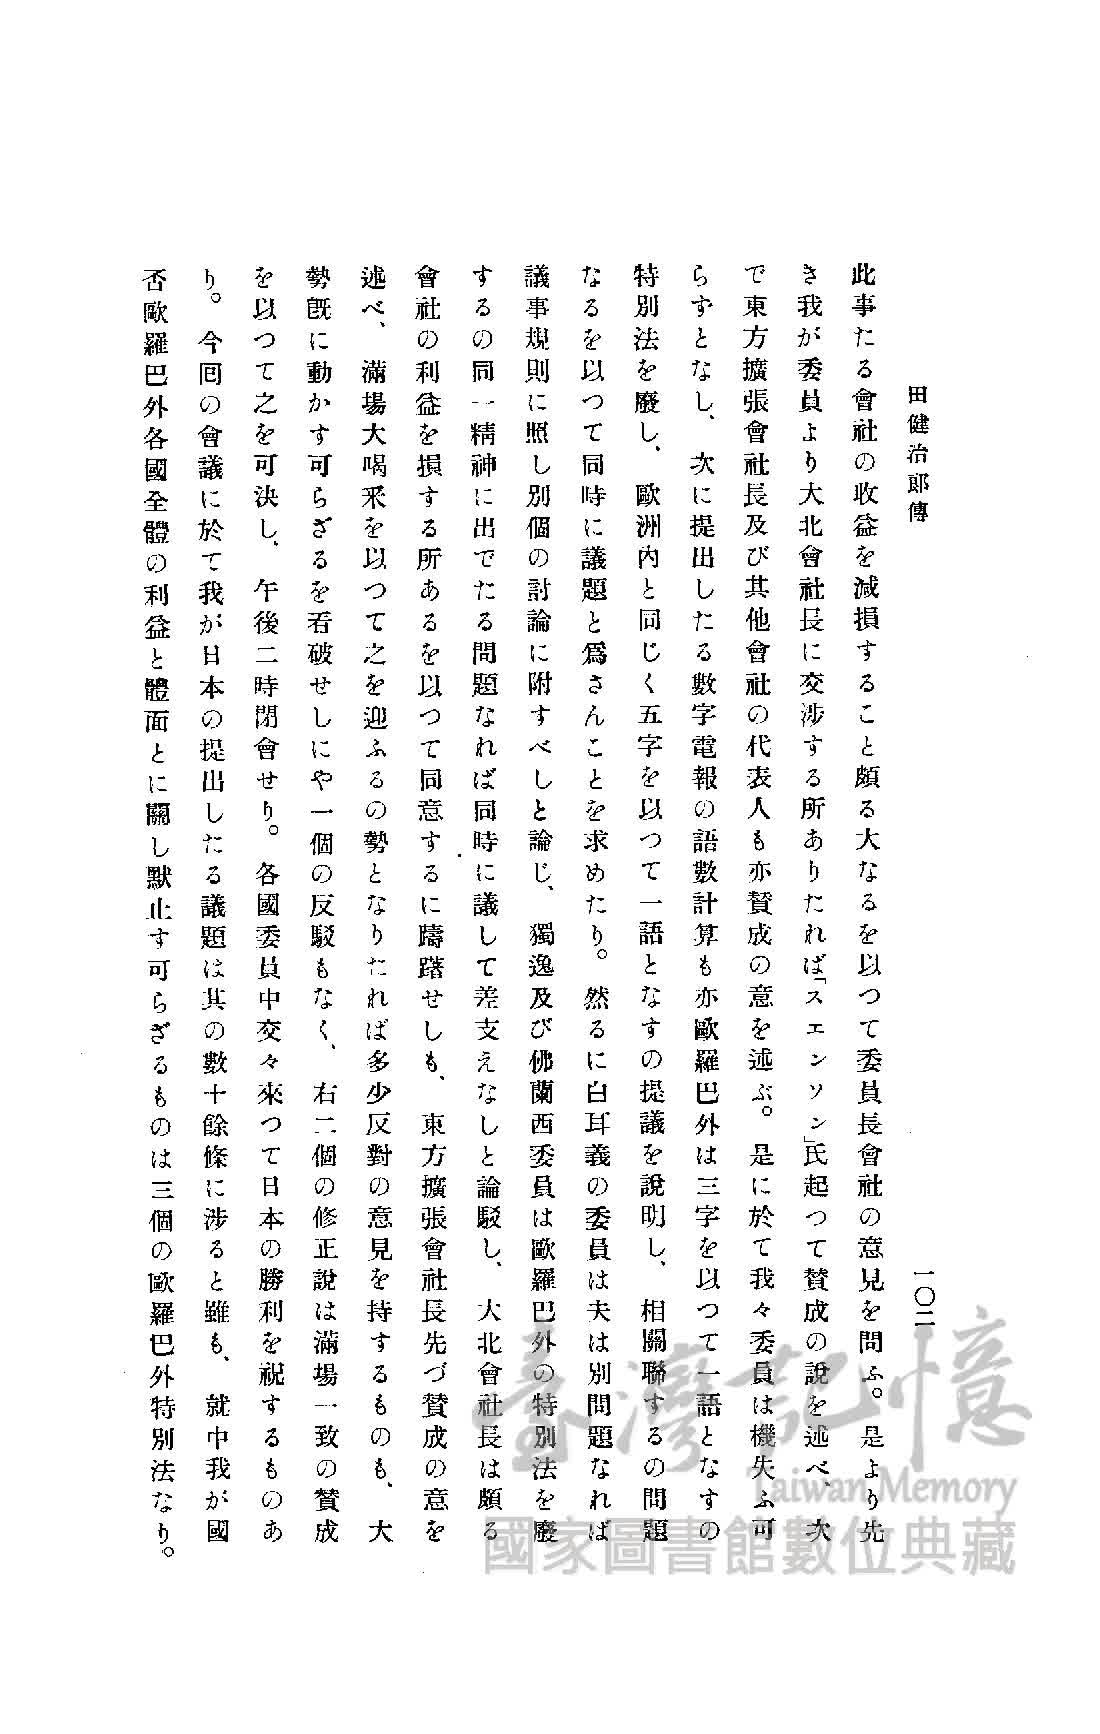 田健治郎傳
一〇二
此事たる會社の收益を減損すること頗る大なるを以つて委員長會社の意見を問ふ。是より先
き我が委員より大北會社長に交渉する所ありたれば「スエンソン」氏起つて賛成の説を述べ、次
で東方擴張會社長及び其他會社の代表人も亦賛成の意を述ぶ。是に於て我々委員は機失ふ可
らずとなし、次に提出したる數字電報の語數計算も亦歐羅巴外は三字を以つて一語となすの
特別法を廢し、歐洲內と同じく五字を以つて一語となすの提議を說明し、相關聯するの問題
なるを以つて同時に議題と爲さんことを求めたり。然るに白耳義の委員は夫は別問題なれば
議事規則に照し別個の討論に附すべしと論じ、獨逸及び佛蘭西委員は歐羅巴外の特別法を廢
するの同一精神に出でたる問題なれば同時に議して差支えなしと論駁し、大北會社長は頗る
會社の利益を損する所あるを以つて同意するに躊躇せしも、東方擴張會社長先づ賛成の意を
述べ、滿場大喝釆を以つて之を迎ふるの勢となりたれば多少反對の意見を持するものも、大
勢旣に動かす可らざるを看破せしにや一個の反駁もなく、右二個の修正說は滿場一致の賛成
を以つて之を可決し、午後二時閉會せり。各國委員中交々來つて日本の勝利を祝するものあ
り。今囘の會議に於て我が日本の提出したる議題は其の數十餘條に涉ると雖も、就中我が國
否歐羅巴外各國全體の利益と體面とに關し默止す可らざるものは三個の歐羅巴外特別法なり。
臺灣記憶
Taiwan Memory
國家圖書館數位典藏